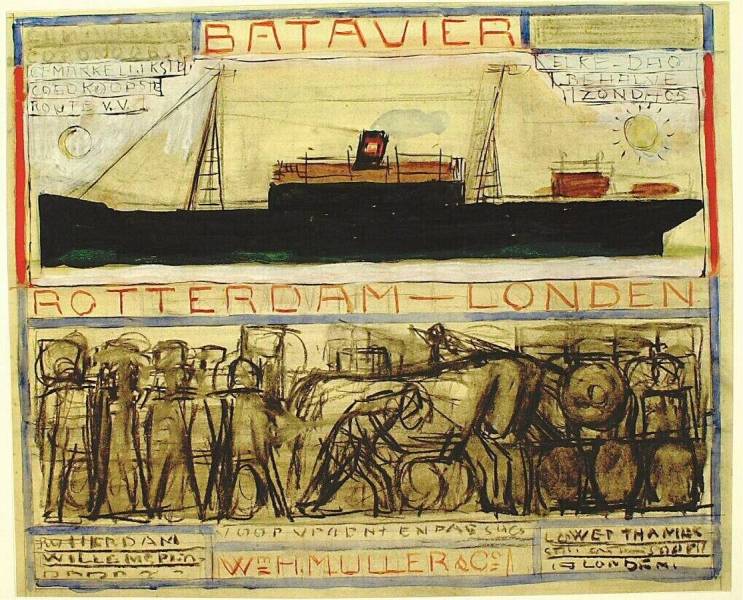 BATAVIER
GEMAKKELIJKSTE
GOEDKOOPSTE
ROUTE V.V.
ELKE-DAG
BEHALVE
ZONDAGS
ROTTERDAM—LONDEN
VOOR VRACHT EN PASSAGE
ROTTERDAM
WILLEMSPLEIN
WM. H. MULLER & CO
LOWER THAMES
LONDEN